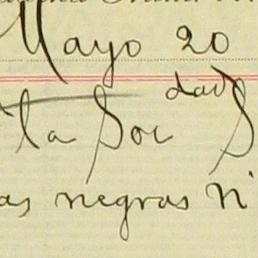 Mayo 20
la Socdad S
as negras N